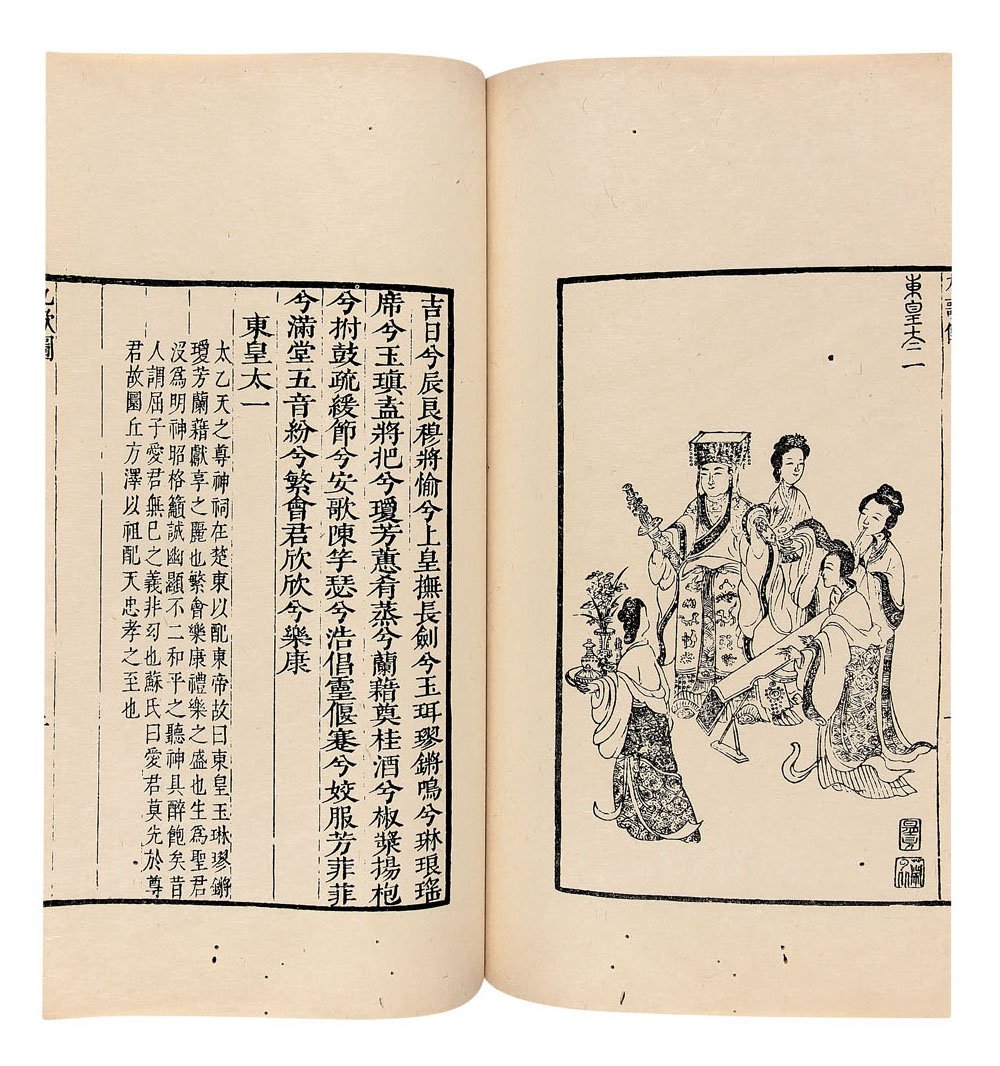 東皇太一
吉日兮辰良穆將愉兮上皇撫長劍兮玉珥璆鏘鳴兮琳琅瑤
席兮玉瑱盍將把兮瓊芳蕙肴蒸兮蘭藉奠桂酒兮椒漿揚枹
兮拊鼓疏緩節兮安歌陳竽瑟兮浩倡靈偃蹇兮姣服芳菲菲
兮滿堂五音紛兮繁會君欣欣兮樂康
東皇太一
太乙天之尊神祠在楚東以配東帝故曰東皇玉琳璆鏘
瓊芳蘭藉獻享之麗也繁會樂康禮樂之盛也生爲聖君
沒爲明神昭格籲誠幽顯不二和平之聽神具醉飽矣昔
人謂屈子愛君無已之義非勾也蘇氏曰愛君莫先於尊
君故圜丘方澤以祖配天忠孝之至也
九歌圖